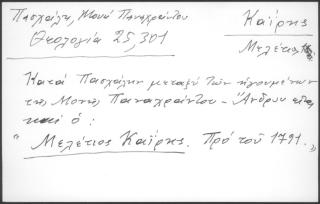 Πασχάλη, Μονή Παναχράντου
Θεολογία 25, 301
Καΐρης
Μελέτιος
Κατά Πασχάλην μεταξύ των ηγουμένων
της Μονής Παναχράντου - Άνδρου είναι
και ο:
"Μελέτιος Καΐρης. Πρό του 1791."